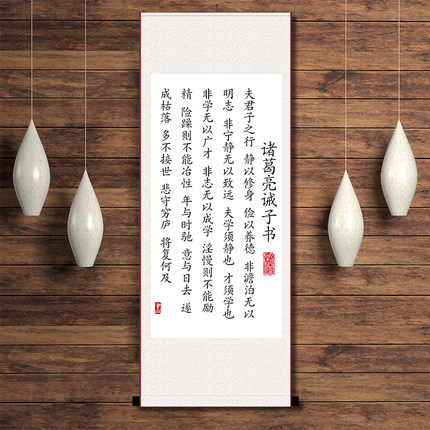 诸葛亮诫子书
夫君子之行 静以修身 俭以养德 非澹泊无以
明志 非宁静无以致远 夫学须静也 才须学也
非学无以广才 非志无以成学 淫慢则不能励
精 险躁则不能冶性 年与时驰 意与日去 遂
成枯落 多不接世 悲守穷庐 将复何及